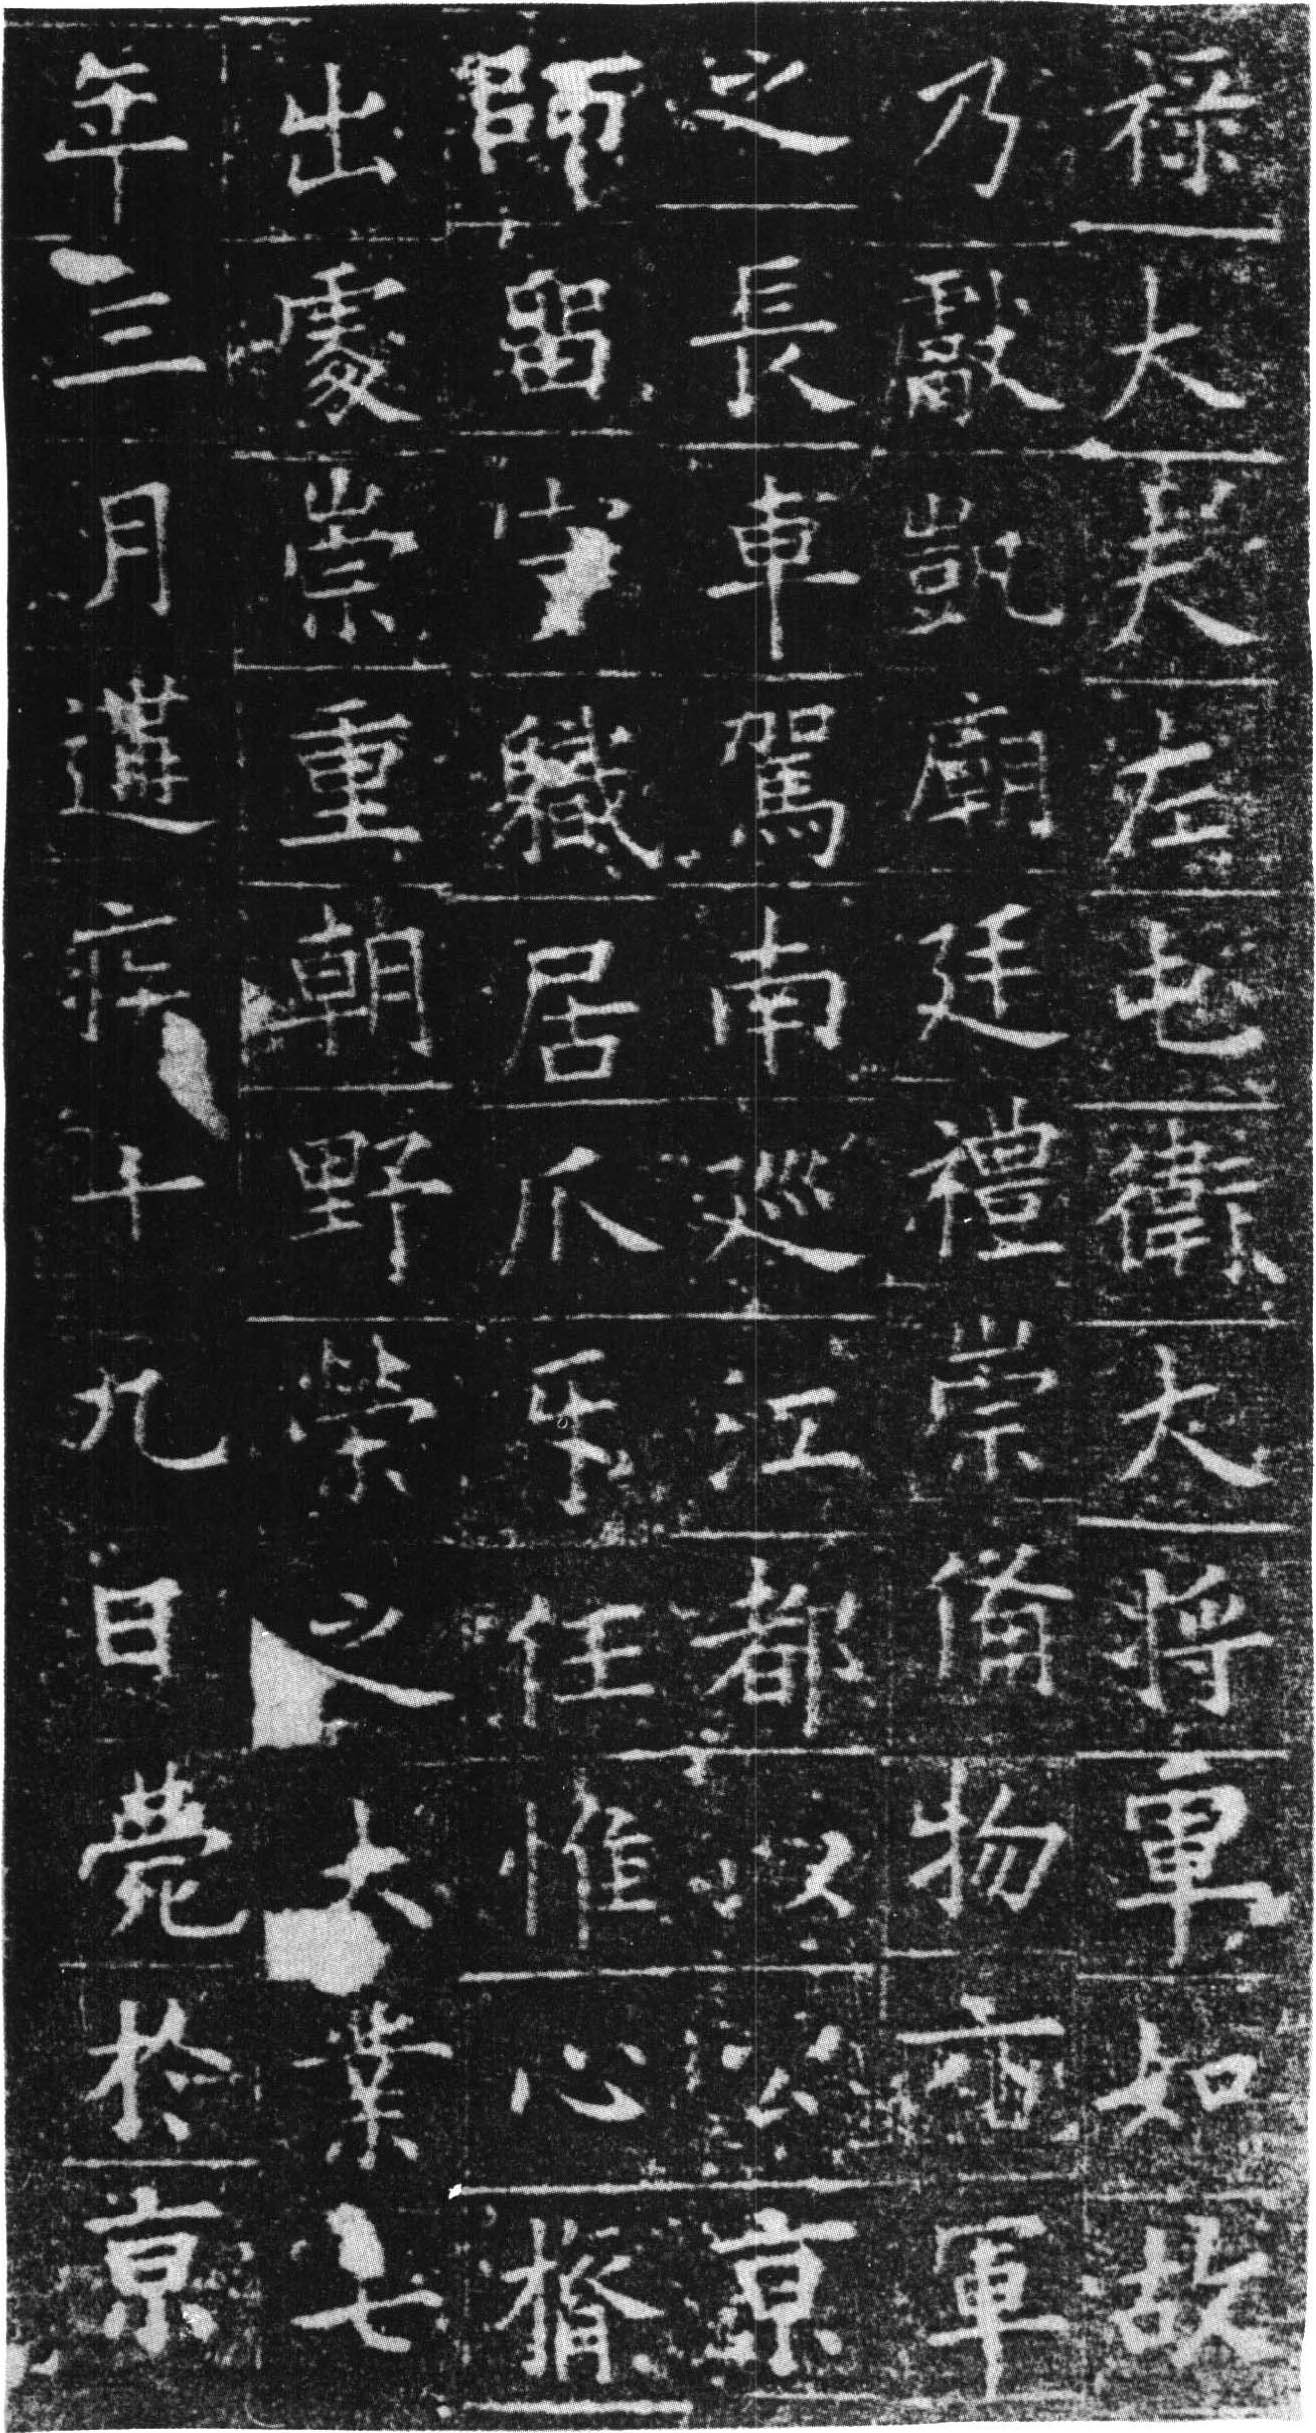 祿大夫左屯衛大將軍如故
乃獻凱廟廷禮崇備物六軍
之長車駕南巡江都以公京
師留守職居爪牙任惟心膂
出處崇重朝野榮之大業七
年三月遘疾十九日薨於京